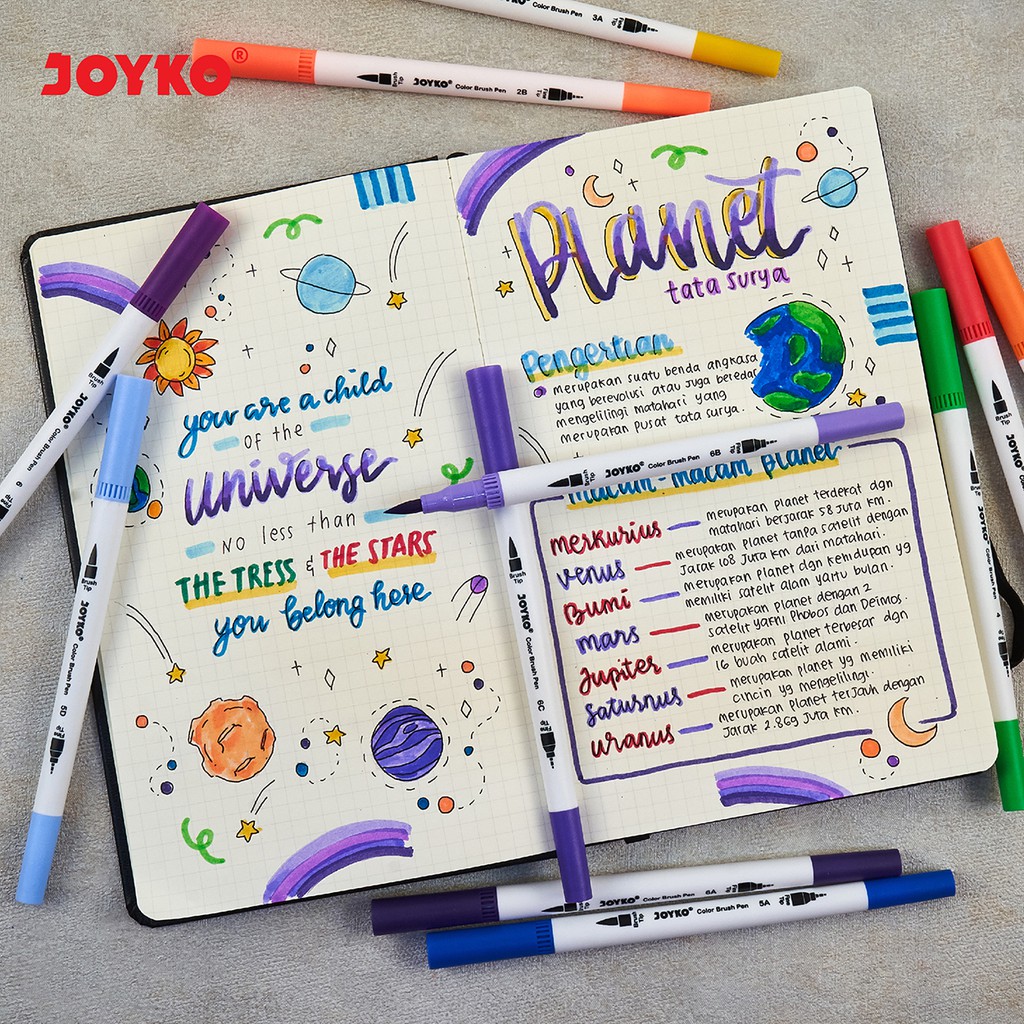 JOYKO®
Color Brush Pen 3A Fine Tip
Brush Tip JOYKO® Color Brush Pen 2B Fine Tip
you are a child
OF the
universe
NO less than
THE TRESS & THE STARS
you belong here
Planet
tata surya
Pengertian
merupakan suatu benda angkasa
yang berevolusi atau juga beredar
mengelilingi matahari yang
merupakan pusat tata surya.
Macam-macam planet
merkurius
merupakan planet terdekat dgn
matahari berjarak 58 juta km.
venus
merupakan planet tanpa satelit dengan
Jarak 108 Juta km dari matahari.
Bumi
merupakan planet dgn kehidupan yg
memiliki satelit alam yaitu bulan.
mars
merupakan planet dengan 2
satelit yaitu Phobos dan Deimos.
Jupiter
merupakan planet terbesar dgn
16 buah satelit alami.
saturnus
merupakan planet yg memiliki
cincin yg mengelilingi.
uranus
merupakan planet terjauh dengan
Jarak 2.869 Juta km.
Brush Tip JOYKO® Color Brush Pen 6
Brush Tip JOYKO® Color Brush Pen 5D Fine Tip
JOYKO® Color Brush Pen 6B Fine Tip
Brush Tip JOYKO® Color Brush Pen 6C Fine Tip
Color Brush Pen 6A Fine Tip
Brush Tip JOYKO® Color Brush Pen 5A Fine Tip
Brush Tip
Brush Tip
4
Fine Tip